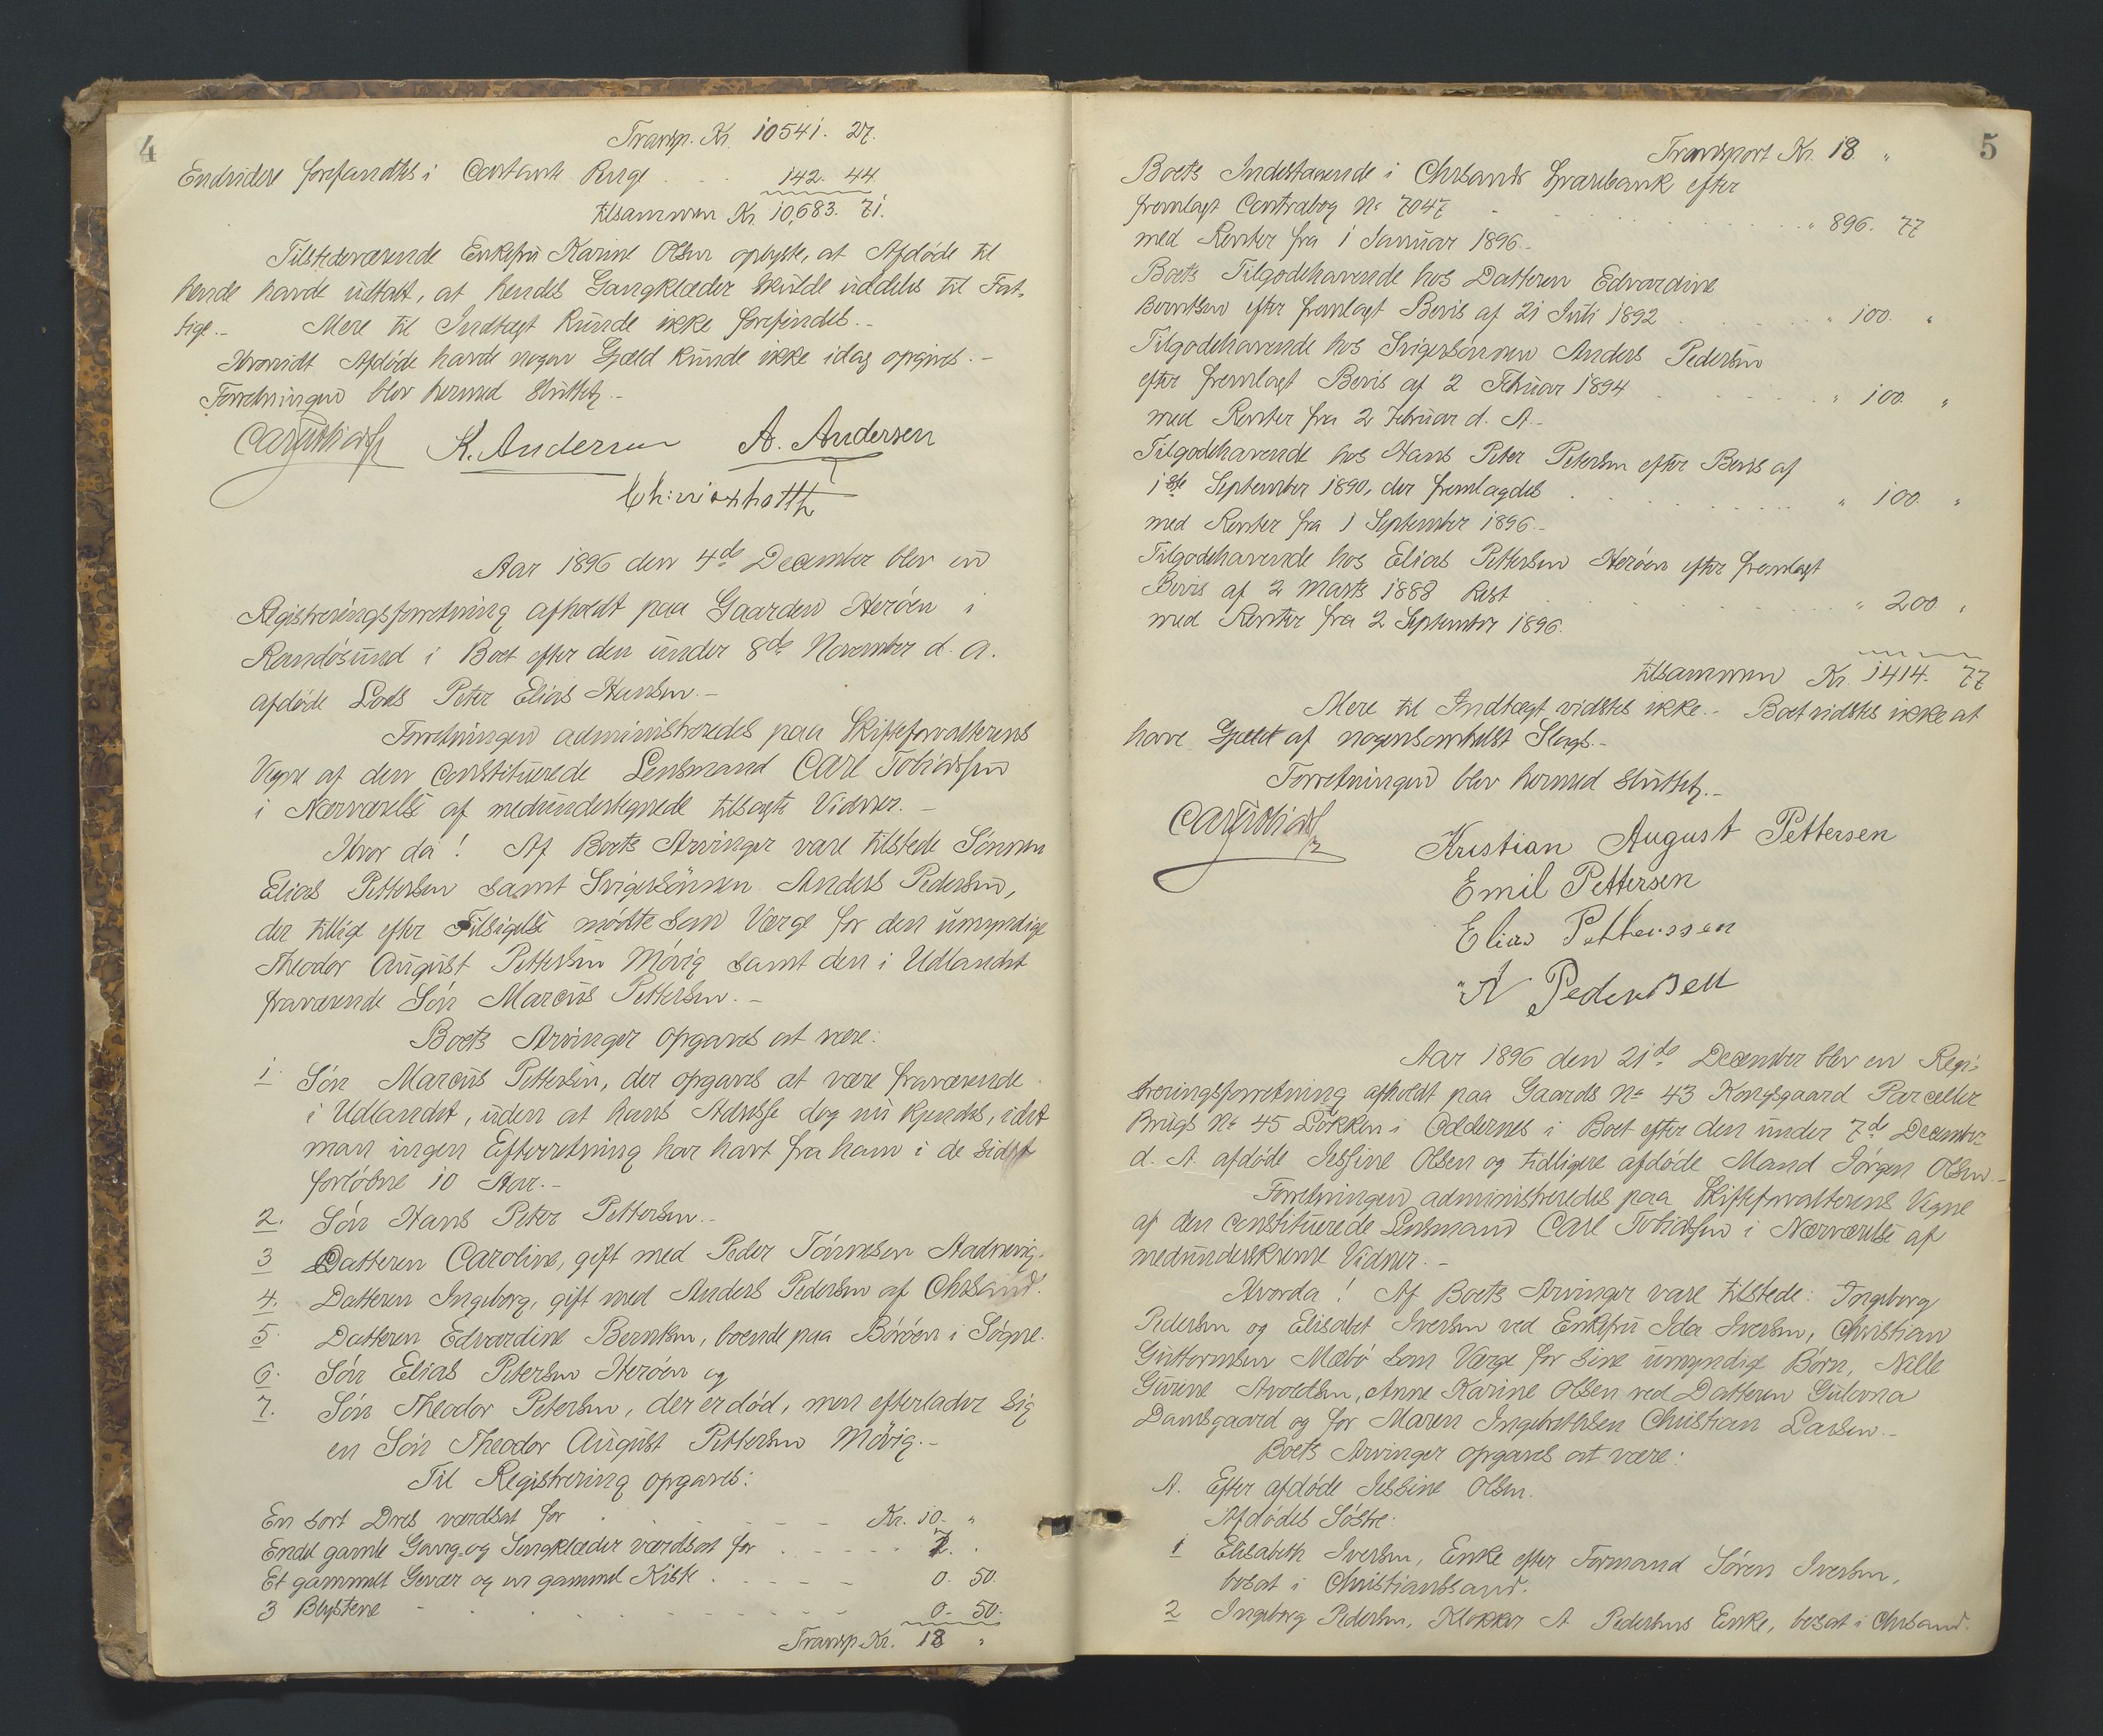 4
Transp. Kr. 10541. 27.
Endvidere forefandtes i Contante Penge . . . 142. 44.
tilsammen Kr. 10,683. 71.
Tilstedeværende Enkefru Karine Olsen oplyste, at Afdøde til
hende havde udtalt, at hendes Gangklæder skulde uddeles til Fat-
tige.- Mere til Indtægt kunde ikke forefindes.-
Hvorvidt Afdøde havde nogen Gjæld kunde ikke idag opgives.-
Forretningen blev hermed sluttet.-
Carl Tobiassen K. Andersen A. Andersen
Aar 1896 den 4de December blev en
Registreringsforretning afholdt paa Gaarden Herøen i
Randøsund i Boet efter den under 8de November d. A.
afdøde Lods Peter Elias Hansen.-
Forretningen administreredes paa Skifteforvalterens
Vegne af den constituerede Lensmand Carl Tobiassen
i Nærværelse af medundertegnede tilsagte Vidner.-
Hvor da! Af Boets Arvinger vare tilstede Sønnen
Elias Pettersen samt Svigersønnen Anders Pedersen,
der tillige efter Tilsigelse mødte som Værge for den umyndige
Theodor August Pettersen Møvig samt den i Udlandet
fraværende Søn Marcus Pettersen.-
Boets Arvinger opgaves at være:
1. Søn Marcus Pettersen, der opgaves at være fraværende
i Udlandet, uden at hans Adresse dog nu kjendes, idet
man ingen Efterretning har havt fra ham i de sidst
forløbne 10 Aar.-
2. Søn Hans Peter Pettersen.-
3 Datteren Caroline, gift med Peder Tønnesen Aadnevig.
4. Datteren Ingeborg, gift med Anders Pedersen af Chrsand.
5. Datteren Edvardine Berntsen, boende paa Borøen i Søgne.
6. Søn Elias Petersen Herøen og
7. Søn Theodor Petersen, der er død, men efterlader sig
en Søn Theodor August Pettersen Møvig.-
Til Registrering opgaves:
En sort Dres værdsat for . . . Kr. 10. "
Endel gamle Gang- og Sengklæder værdsat for . . . 7. "
Et gammelt Gevær og en gammel Kiste . . . 0. 50.
3 Blystene . . . 0. 50.
Transp. Kr. 18 "
5
Transport Kr. 18 "
Boets Indestaaende i Chrsands Sparebank efter
fremlagt Contrabog No 7047 . . . " 896. 77
med Renter fra 1 Januar 1896.-
Boets Tilgodehavende hos Datteren Edvardine
Berntsen efter fremlagt Bevis af 21 Juli 1892 . . . " 100. "
Tilgodehavende hos Svigersønnen Anders Pedersen
efter fremlagt Bevis af 2 Februar 1894 . . . " 100. "
med Renter fra 2 Februar d. A.-
Tilgodehavende hos Hans Peter Petersen efter Bevis af
1ste September 1890, der fremlagdes . . . " 100 "
med Renter fra 1 September 1896.-
Tilgodehavende hos Elias Pettersen Herøen efter fremlagt
Bevis af 2 Marts 1888 Rest . . . " 200 "
med Renter fra 2 September 1896.
tilsammen Kr. 1414. 77
Mere til Indtægt vidstes ikke.- Boet vidstes ikke at
have Gjæld af nogensomhelst Slags.-
Forretningen blev hermed sluttet.-
Carl Tobiassen
Kristian August Pettersen
Emil Pettersen
Elias Petterssen
A Pedersen
Aar 1896 den 21de December blev en Regi-
streringsforretning afholdt paa Gaards No 43 Kongsgaard Parceller
Brugs No 45 Løkken i Oddernes i Boet efter den under 7de December
d. A. afdøde Jessine Olsen og tidligere afdøde Mand Jørgen Olsen.-
Forretningen administreredes paa Skifteforvalterens Vegne
af den constituerede Lensmand Carl Tobiassen i Nærværelse af
medunderskrevne Vidner.-
Hvorda! Af Boets Arvinger vare tilstede: Ingeborg
Pedersen og Elisabet Iversen ved Enkefru Ida Iversen, Christian
Guttormsen Mæbø som Værge for sine umyndige Børn, Nille
Gurine Avoldsen, Anne Karine Olsen ved Datteren Gulovna
Damsgaard og for Maren Ingebrethsen Christian Larsen.-
Boets Arvinger opgaves at være:
A. Efter afdøde Jessine Olsen.
Afdødes Søstre:
1 Elisabeth Iversen, Enke efter Formand Søren Iversen,
bosat i Christianssand.
2 Ingeborg Pedersen, Klokker A Pedersens Enke, bosat i Chrsand.